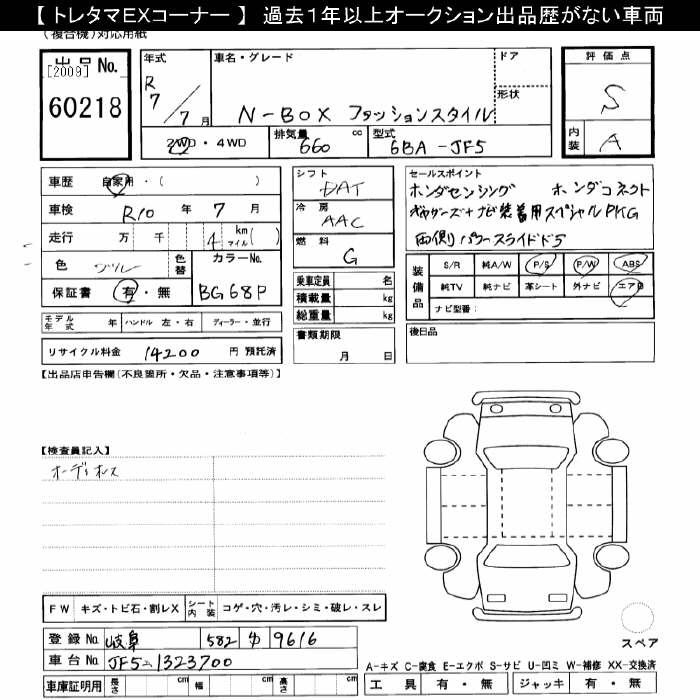 【 トレタマEXコーナー 】 過去1年以上オークション出品歴がない車両
(複合機)対応用紙
出品 No.
[2009]
60218
年式
R
7/7月
車名・グレード
N-BOX ファッションスタイル
ドア
形状
2WD・4WD
排気量 660 cc
型式 6BA-JF5
評価点
S
内装 A
車歴 自家用・( )
車検 R10 年 7 月
走行 万 千 4 km マイル( )
色 ブルー
色替
カラーNo.
BG68P
保証書 有・無
シフト
DAT
冷房
AAC
燃料
G
乗車定員 名
積載量 kg
総重量 kg
セールスポイント
ホンダセンシング ホンダコネクト
ギャザーズナビ装着用スペシャルPKG
両側パワースライドドア
装備品
S/R 純A/W P/S P/W ABS
純TV 純ナビ 革シート 外ナビ エアB
ナビ型番:
モデル年式 年 ハンドル 左・右 ディーラー・並行
リサイクル料金 14200 円 預託済
書類期限
月 日
後日品
【出品店申告欄(不良箇所・欠品・注意事項等)】
【検査員記入】
オーディオレス
FW キズ・トビ石・割レX シート内装 コゲ・穴・汚レ・シミ・破レ・スレ
登録 No. 岐阜 582 わ 9616
車台 No. JF5-1323700
車庫証明用 長さ cm 幅 cm 高さ cm
スペア
A-キズ C-腐食 E-エクボ S-サビ U-凹ミ W-補修 XX-交換済
工具 有・無 ジャッキ 有・無